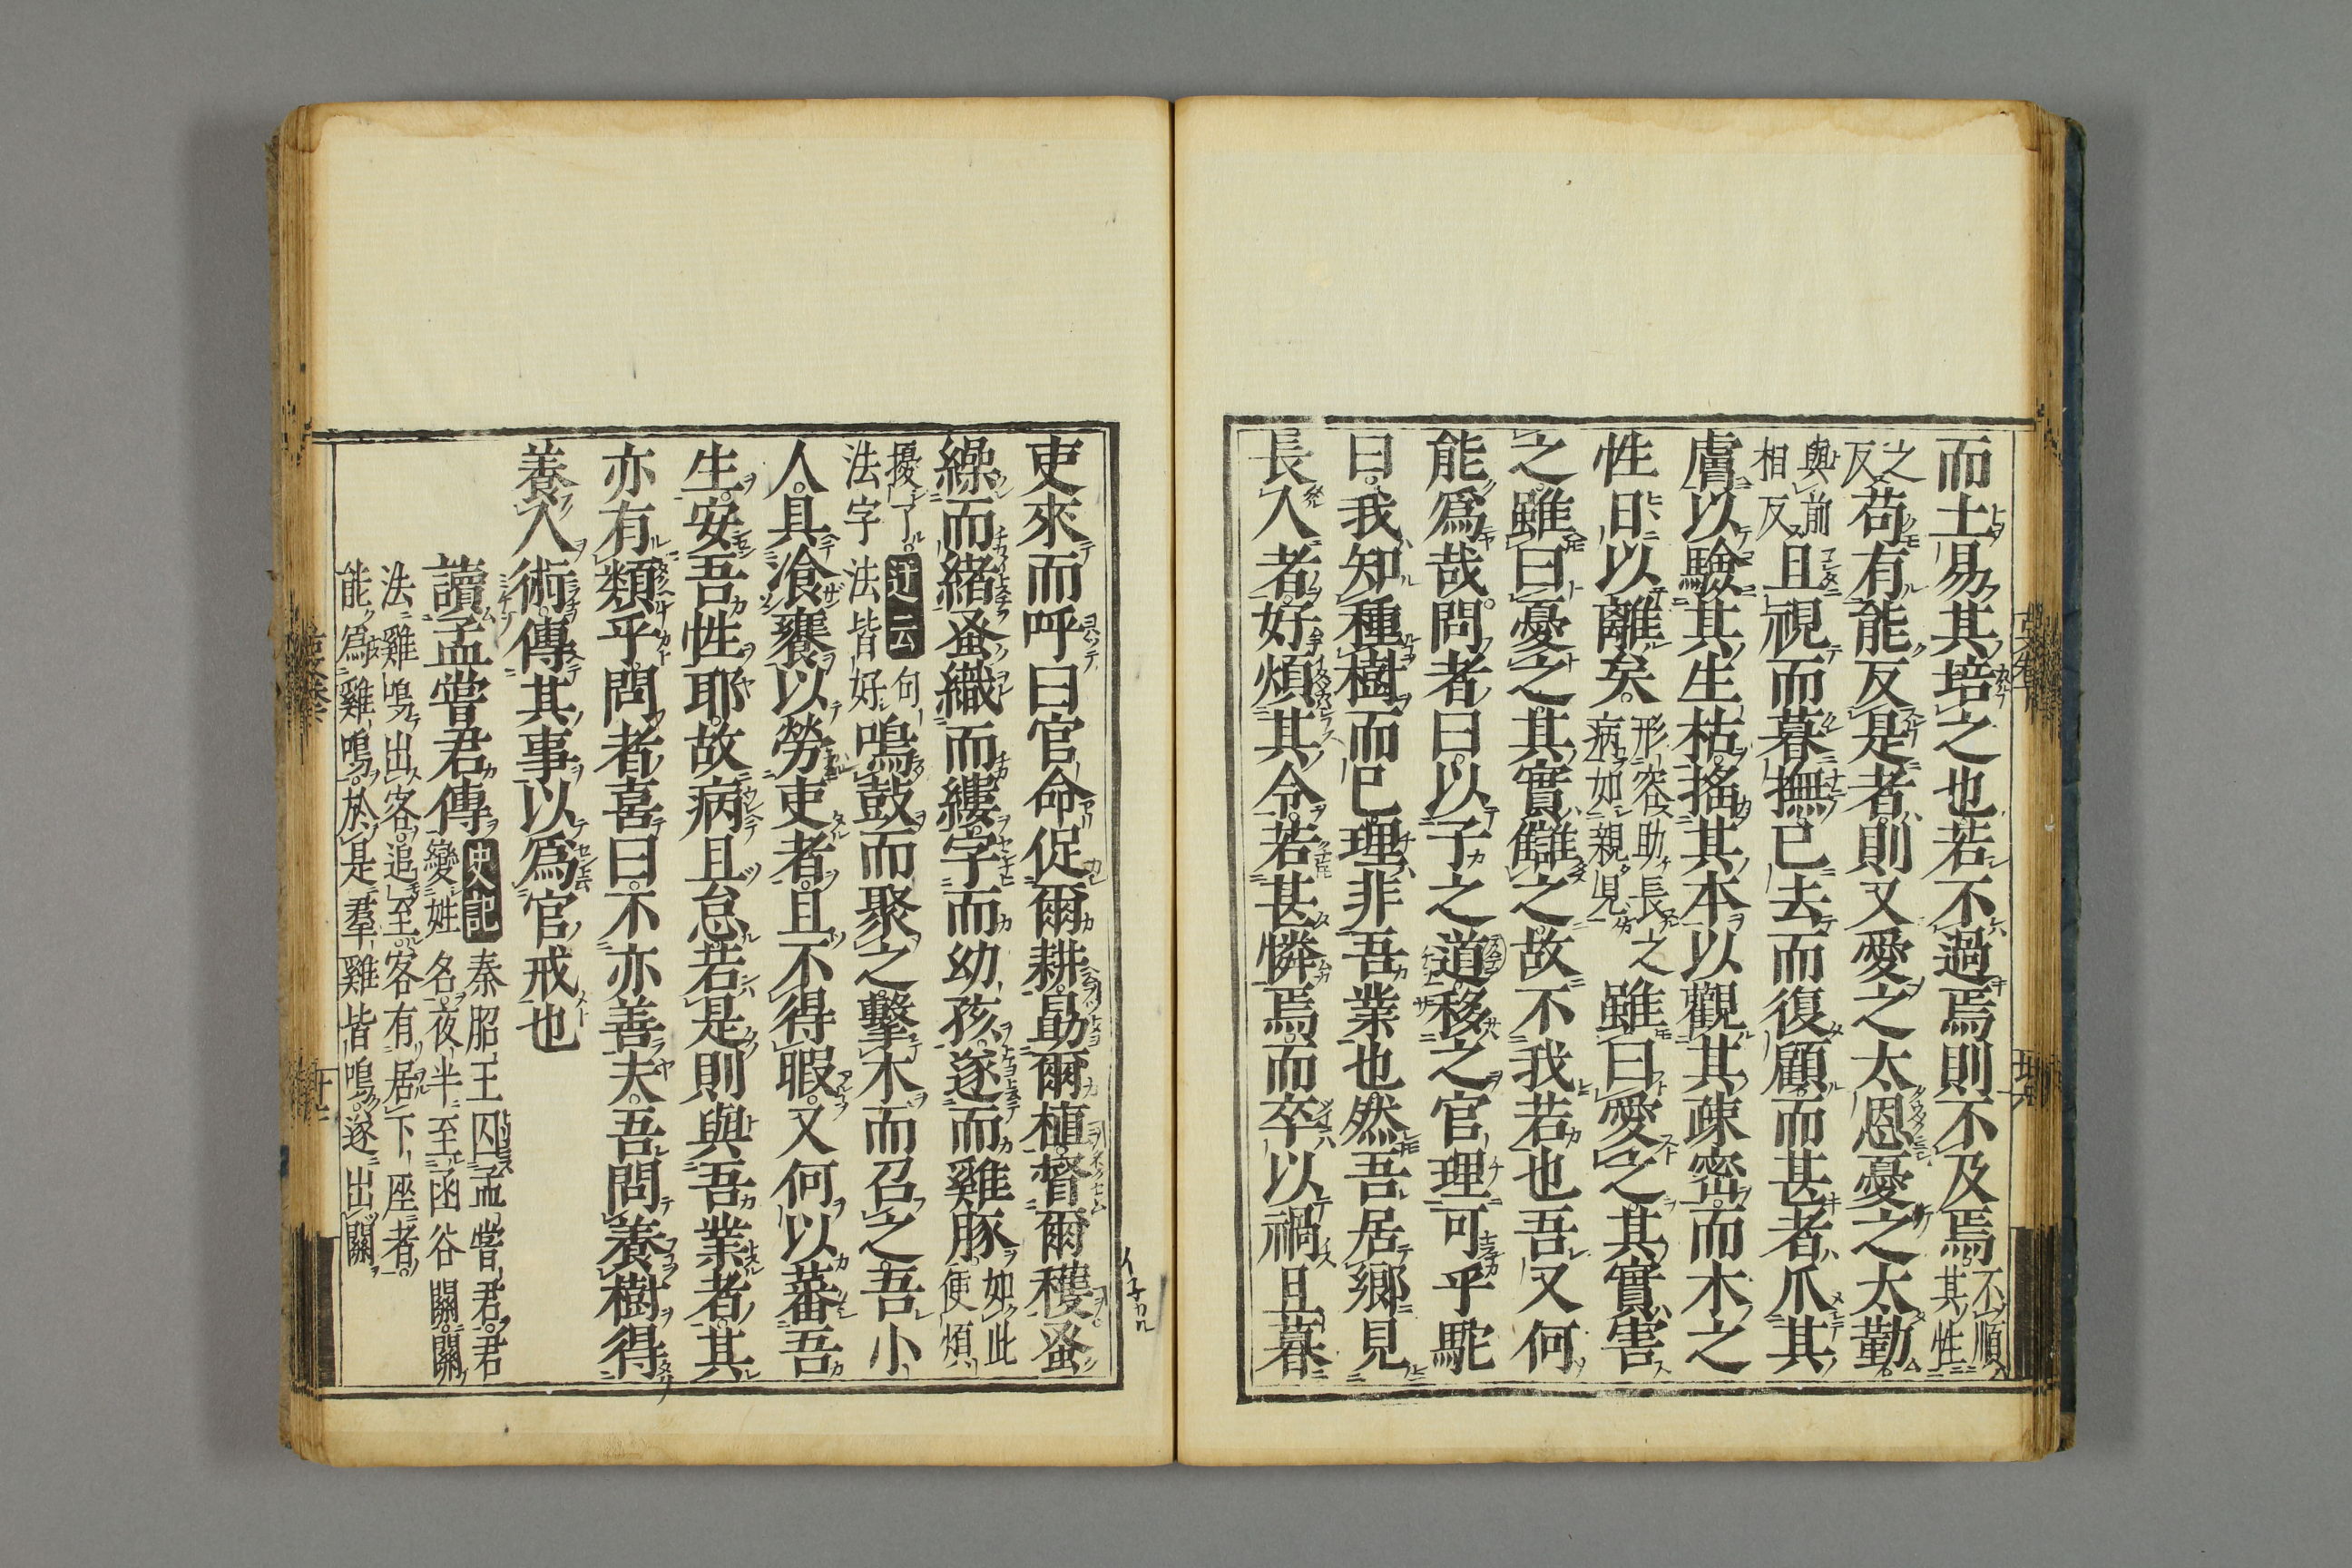 而土易其培之也若不過焉則不及焉不順其性
之反苟有能反是者則又愛之太恩憂之太勤
與前相反且視而暮撫已去而復顧而甚者爪其
膚以驗其生枯搖其本以觀其疎密而木之
性日以離矣形容助長之病如親見雖曰愛之其實害
之雖曰憂之其實讎之故不我若也吾又何
能爲哉問者曰以子之道移之官理可乎駝
曰我知種樹而已理非吾業也然吾居鄉見
長人者好煩其令若甚憐焉而卒以禍旦暮
吏來而呼曰官命促爾耕勗爾植督爾穫蚤
繰而緒蚤織而縷字而幼孩遂而雞豚如此便煩
擾了迂云句法字法皆好鳴鼓而聚之擊木而召之吾小
人具飧饔以勞吏者且不得暇又何以蕃吾
生安吾性耶故病且怠若是則與吾業者其
亦有類乎問者喜曰不亦善夫吾問養樹得
養人術傳其事以爲官戒也
讀孟嘗君傳史記秦昭王囚孟嘗君君變姓名夜半至函谷關關
法雞鳴出客追至客有居下座者
能爲雞鳴於是羣雞皆鳴遂出關